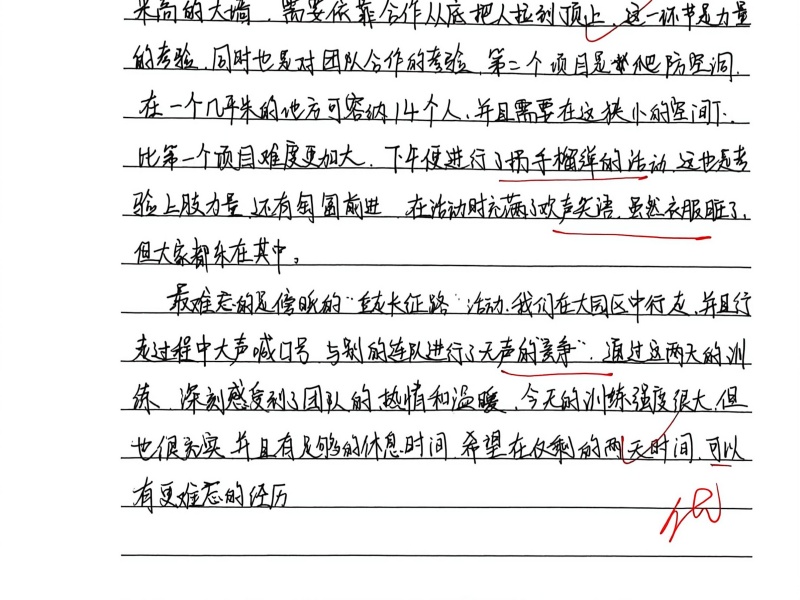 米高的大墙，需要依靠合作从底把人拉到顶上，这一环节是力量
的考验，同时也是对团队合作的考验，第二个项目是爬防空洞，
在一个几平米的地方可容纳14个人，并且需要在这狭小的空间下，
比第一个项目难度更加大，下午便进行了扔手榴弹的活动，这也是考
验上肢力量，还有匍匐前进，在活动时充满了欢声笑语，虽然衣服脏了，
但大家都乐在其中。
最难忘的是傍晚的"走长征路"活动，我们在大园区中行走，并且行
走过程中大声喊口号，与别的连队进行了无声的"竞争"，通过这两天的训
练，深刻感受到了团队的热情和温暖，今天的训练强度很大，但
也很充实，并且有足够的休息时间，希望在仅剩的两天时间，可以
有更难忘的经历